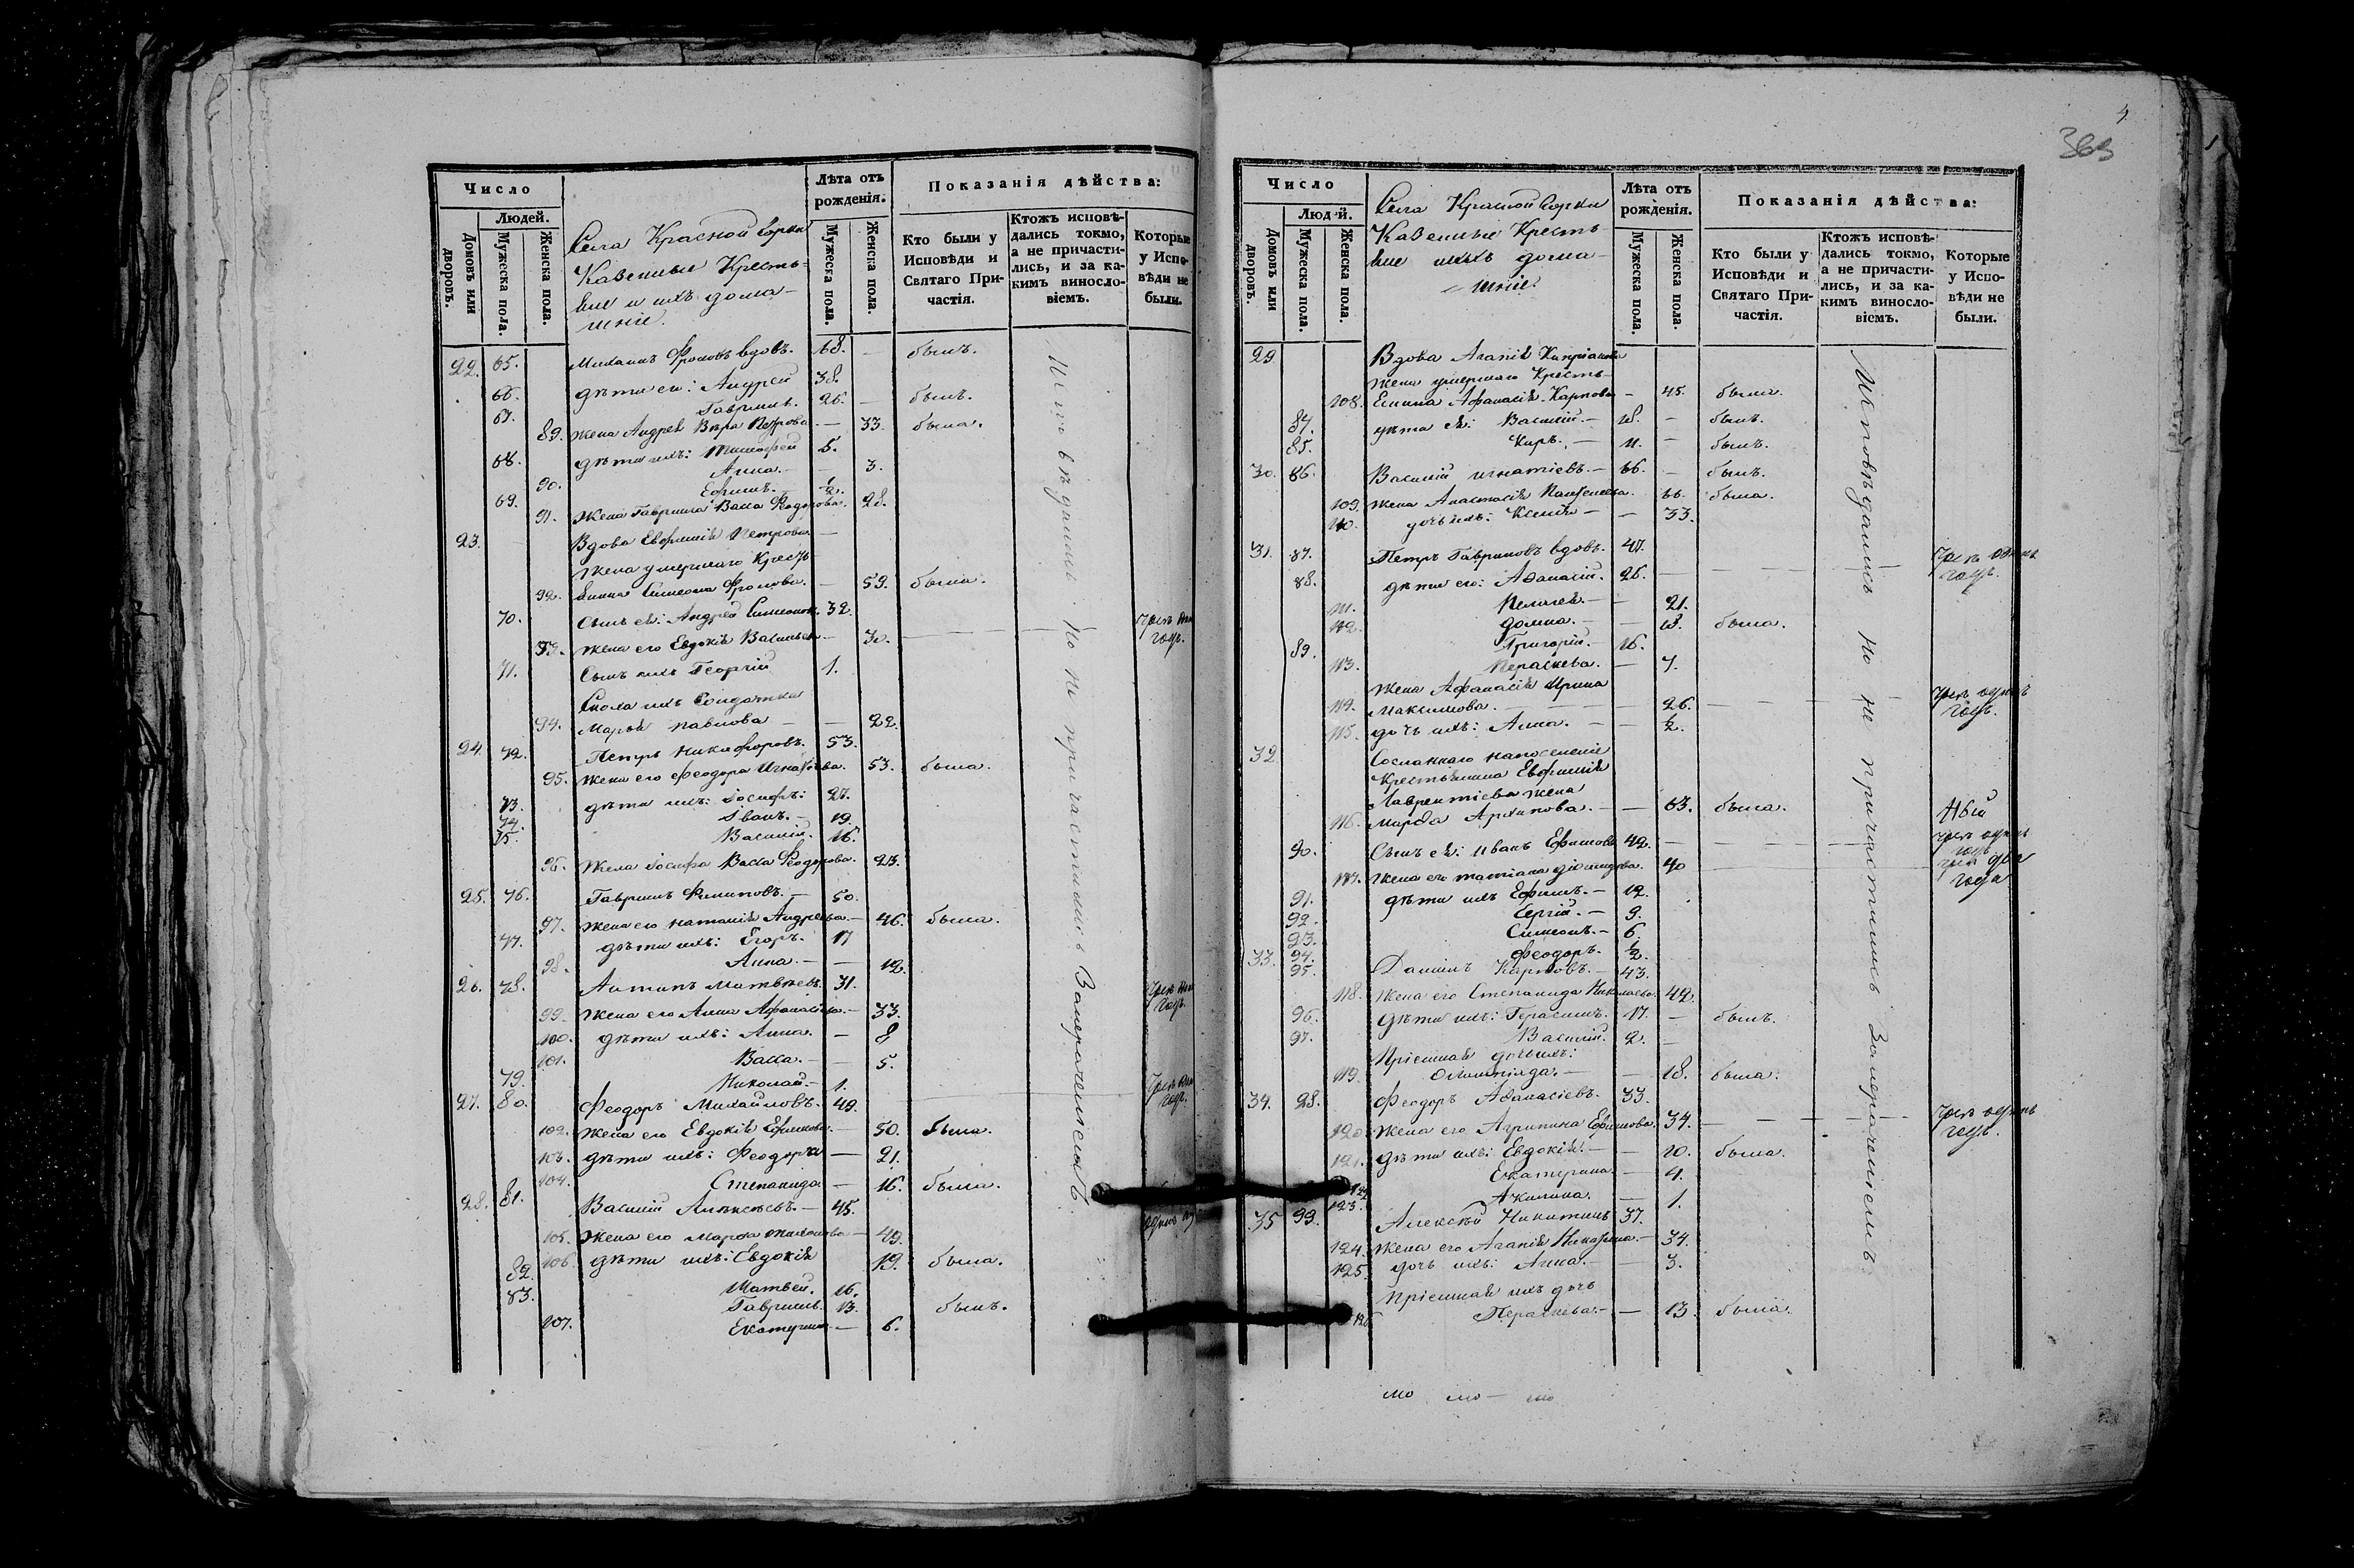 Число
Людей.
Домовъ или дворовъ.
Мужеска пола.
Женска пола.
Села Красной Горки
Казенные Кресть-
яне и ихъ дома-
шніе.
Лѣта отъ рожденія.
Мужеска пола.
Женска пола.
Показанія дѣйства:
Кто были у Исповѣди и Святаго Причастія.
Ктожъ исповѣ-
дались токмо,
а не причасти-
лись, и за ка-
кимъ винсло-
віемъ.
Которые
у Испо-
вѣди не
были.
22. 65. Михаилъ Фроловъ вдовъ. 68. — былъ.
66. дѣти его: Андрей 38.
67. Гаврiилъ. 26. — былъ.
89. жена Андрея Вѣра Петрова. — 33. была.
68. дѣти ихъ: Тимофей 5.
90. Анна. — — 3.
69. Ефимъ. — ½.
91. Жена Гавріила Васса Ѳеодорова. 28.
23. Вдова Евфимія Петрова —
жена умершаго Кресть
92. янина Симеона Фролова. — 59. была.
70. Сынъ ея: Андрей Симеонов. 32.
93. жена его Евдокія Васильев — 30. — — —
71. Сынъ ихъ Георгій 1.
94. Марья Павлова — — 22.
24. 72. Петръ Никифоровъ. 53.
95. жена его Феодора Игнатьева. 53. была.
73. дѣти ихъ: Іосифъ: 27.
74. Іванъ. — 19.
75. Василій. 16.
96. Жена Іосифа Васса Ѳеодорова. 23.
25. 76. Гавріилъ Филиповъ. — 50.
97. жена его Наталія Андреева. — 46. была.
77. дѣти ихъ: Егоръ. 17
98. Анна. — — 12.
26. 78. Антипъ Матвѣевъ. 31.
99. жена его Анна Афанасіева. — 33.
100. дѣти ихъ: Анна. — 8
101. Васса. — — 5.
79. Николай. — 1.
27. 80. Феодоръ Михайловъ. 49.
102. жена его Евдокія Ефимова. — 50. была.
103. дѣти ихъ: Феодора — 21.
104. Степанида — 16. была.
28. 81. Василій Алексѣевъ. — 45.
105. жена его Марфа — 49.
106. дѣти ихъ: Евдокія 19. была.
82. Матвей. 16.
83. Гавріилъ. 13. былъ.
107. Екатерина — 6.
Исповѣдались но не причастились
4
363
Число
Людей.
Домовъ или дворовъ.
Мужеска пола.
Женска пола.
Села Красной Горки
Казенные Кресть
яне ихъ дома-
шніе.
Лѣта отъ рожденія.
Мужеска пола.
Женска пола.
Показанія дѣйства:
Кто были у Исповѣди и Святаго Причастія.
Ктожъ исповѣ-
дались токмо,
а не причасти-
лись, и за ка-
кимъ винсло-
віемъ.
Которые
у Испо-
вѣди не
были.
29 Вдова Агапія Кипріанова
жена умершаго Кресть-
108. янина Афанасія Карпова — 45. была.
84. дѣти ея: Василій. — 18. — былъ.
85. Киръ. — 11. — былъ.
30. 86. Василій Игнатіевъ. — 66. — былъ.
109. жена Анастасія 66. была.
110. дочь ихъ: Ксенія — — 33.
31. 87. Петръ Гавриловъ вдовъ. 47.
88. дѣти его: Афанасій. 26. — — — чрезъ одинъ годъ.
111. Пелагея. — — 21.
112. Домна. — — 18. была.
89. Григорій. — 16.
113. Параскева. — 7.
жена Афанасія Ирина
114. Максимова. — — 26. — — — чрезъ одинъ годъ.
115. дочь ихъ: Анна. — — ½.
32 Сосланнаго на поселеніе
Крестьянина Евфимія
Лаврентіева жена
116. Марфа Архипова. — — 63. была.
90. Сынъ ея: Иванъ Ефимовъ 42. — — — чрезъ одинъ годъ
117. жена его Татіана 40 два года
91. дѣти ихъ Ефимъ. — 12.
92. Сергій. — 9.
93. Симеонъ. — 6.
94. Феодоръ. ½.
33. 95. Даніилъ Карповъ. — 43.
118. жена его Степанида Николаева. 42.
96. дѣти ихъ: Герасимъ. 17. — былъ.
97. Василій. 2. —
Пріемная дочь ихъ:
119. Олимпіада. — — 18. была.
34. 98. Феодоръ Афанасіевъ. 33.
120. жена его Агрипина Ефимова. 34. — — — чрезъ одинъ годъ.
121. дѣти ихъ: Евдокія. — — 10. была.
122 Екатерина. — 4.
123. Акилина. — 1.
35 99. Алексѣй Никитинъ 37.
124. жена его Агапія — 34.
125. дочь ихъ: Анна. — 3.
Пріемная ихъ дочь
126 Параскева. — — 13. была.
Исповѣдались но не причастились